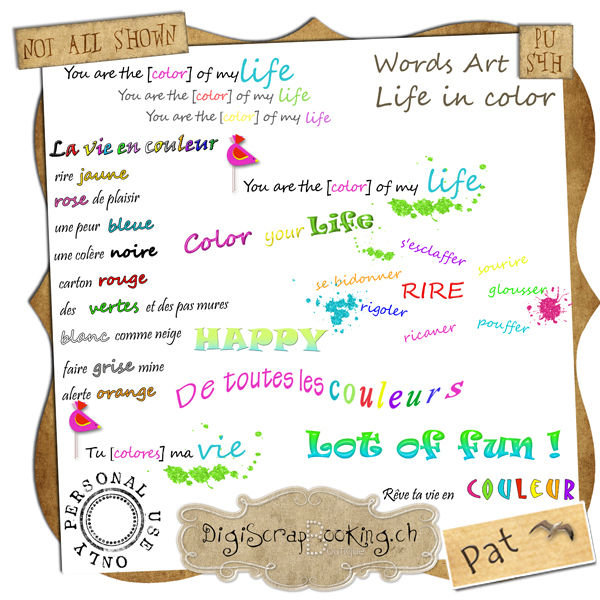 NOT ALL SHOWN
PU
S4H
Words Art
Life in color
You are the [color] of my life
You are the [color] of my life
You are the [color] of my life
La vie en couleur
rire jaune
rose de plaisir
une peur bleue
une colère noire
carton rouge
des vertes et des pas mures
blanc comme neige
faire grise mine
alerte orange
You are the [color] of my life
Color your Life
s'esclaffer
sourire
se bidonner
RIRE
glousser
rigoler
ricaner
pouffer
HAPPY
De toutes les couleurs
Tu [colores] ma vie
Lot of fun !
Rêve ta vie en COULEUR
PERSONAL USE ONLY
DigiScrapBooking.ch
Boutique
Pat